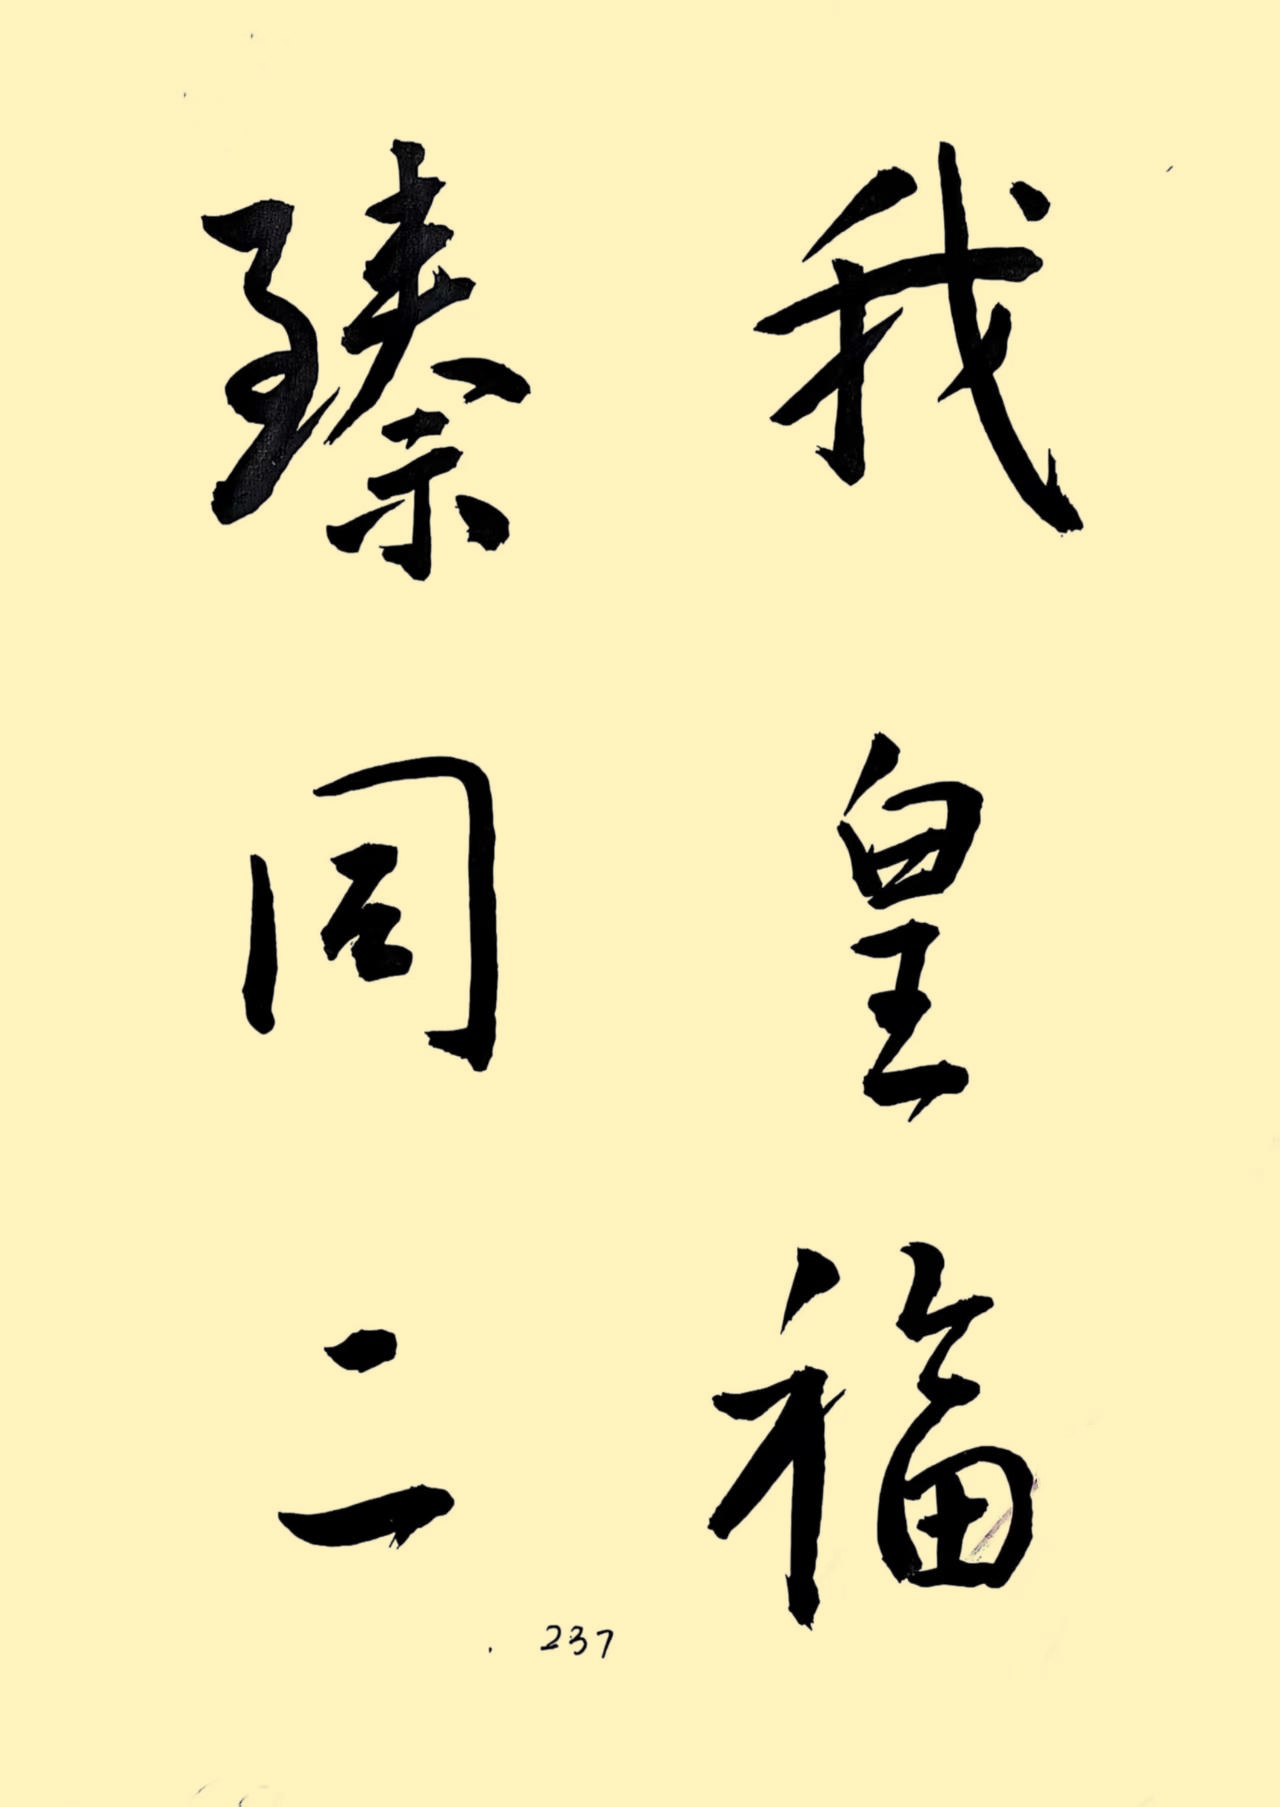 我皇福
臻同二
237